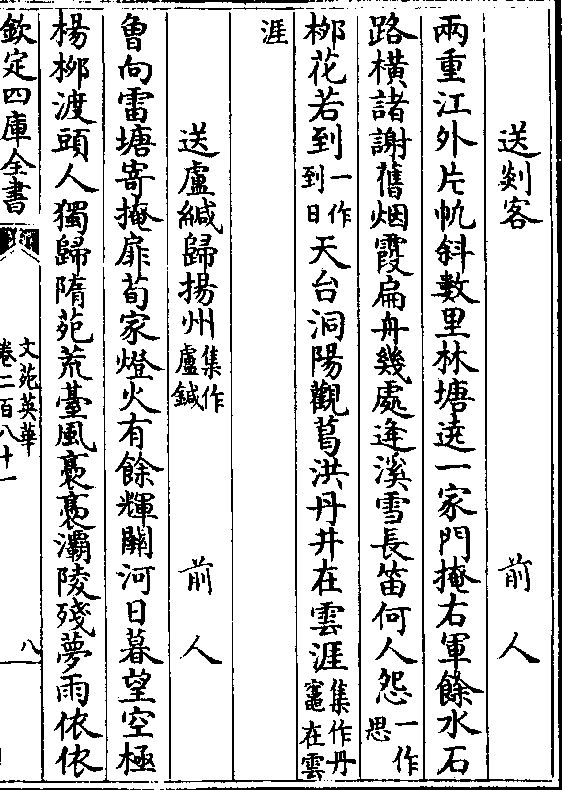 送剡客　前人
兩重江外片帆斜數里林塘遶一家門掩右軍餘水石
路橫諸謝舊烟霞扁舟幾處逢溪雪長笛何人怨一作思
柳花若到一作到日天台洞陽觀葛洪丹井在雲涯集作丹竈在雲
涯
送盧緘歸揚州集作盧鍼　前人
曾向雷塘寄掩扉荀家燈火有餘輝關河日暮望空極
楊柳渡頭人獨歸隋苑荒臺風裊裊灞陵殘夢雨依依
欽定四庫全書
文苑英華
卷二百八十一
八